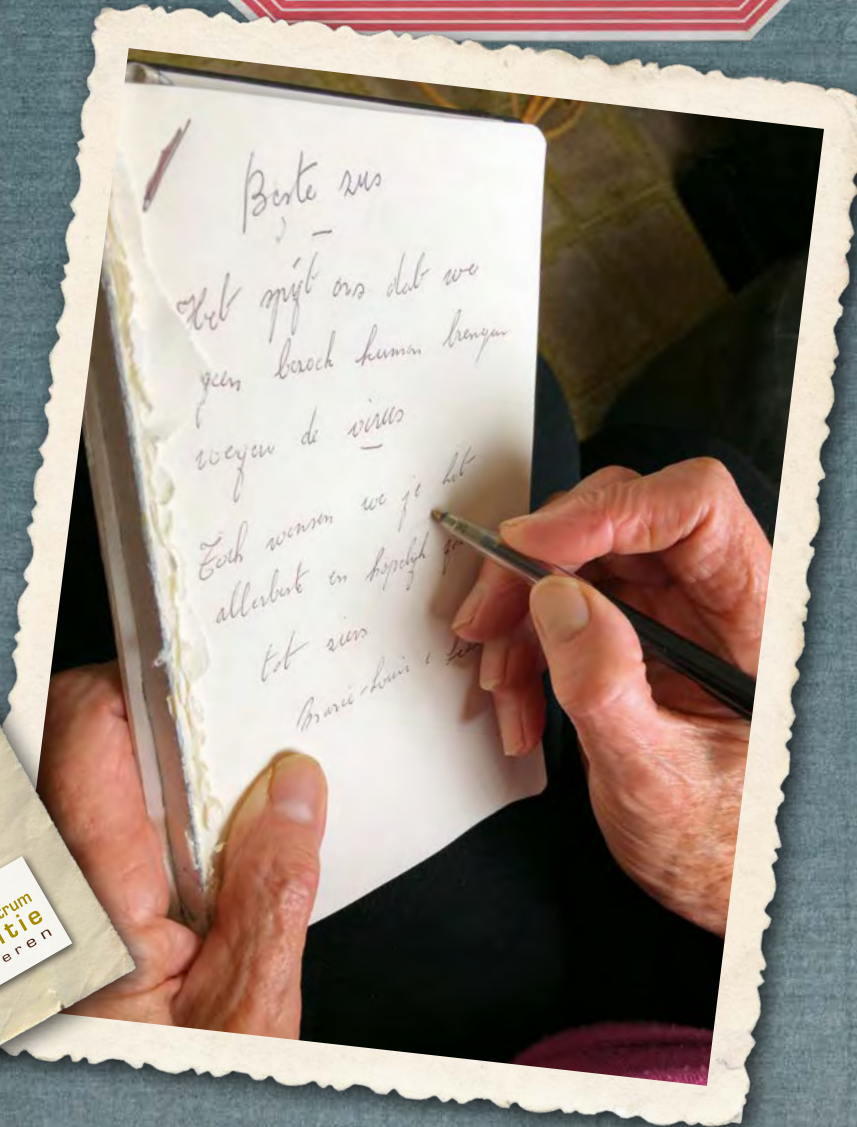 Beste zus
Het spijt ons dat we
geen bezoek kunnen brengen
wegen de virus
Toch wensen we je het
allerbeste en hopelijk
tot ziens
Marie-Louise &
trum
tie
eren